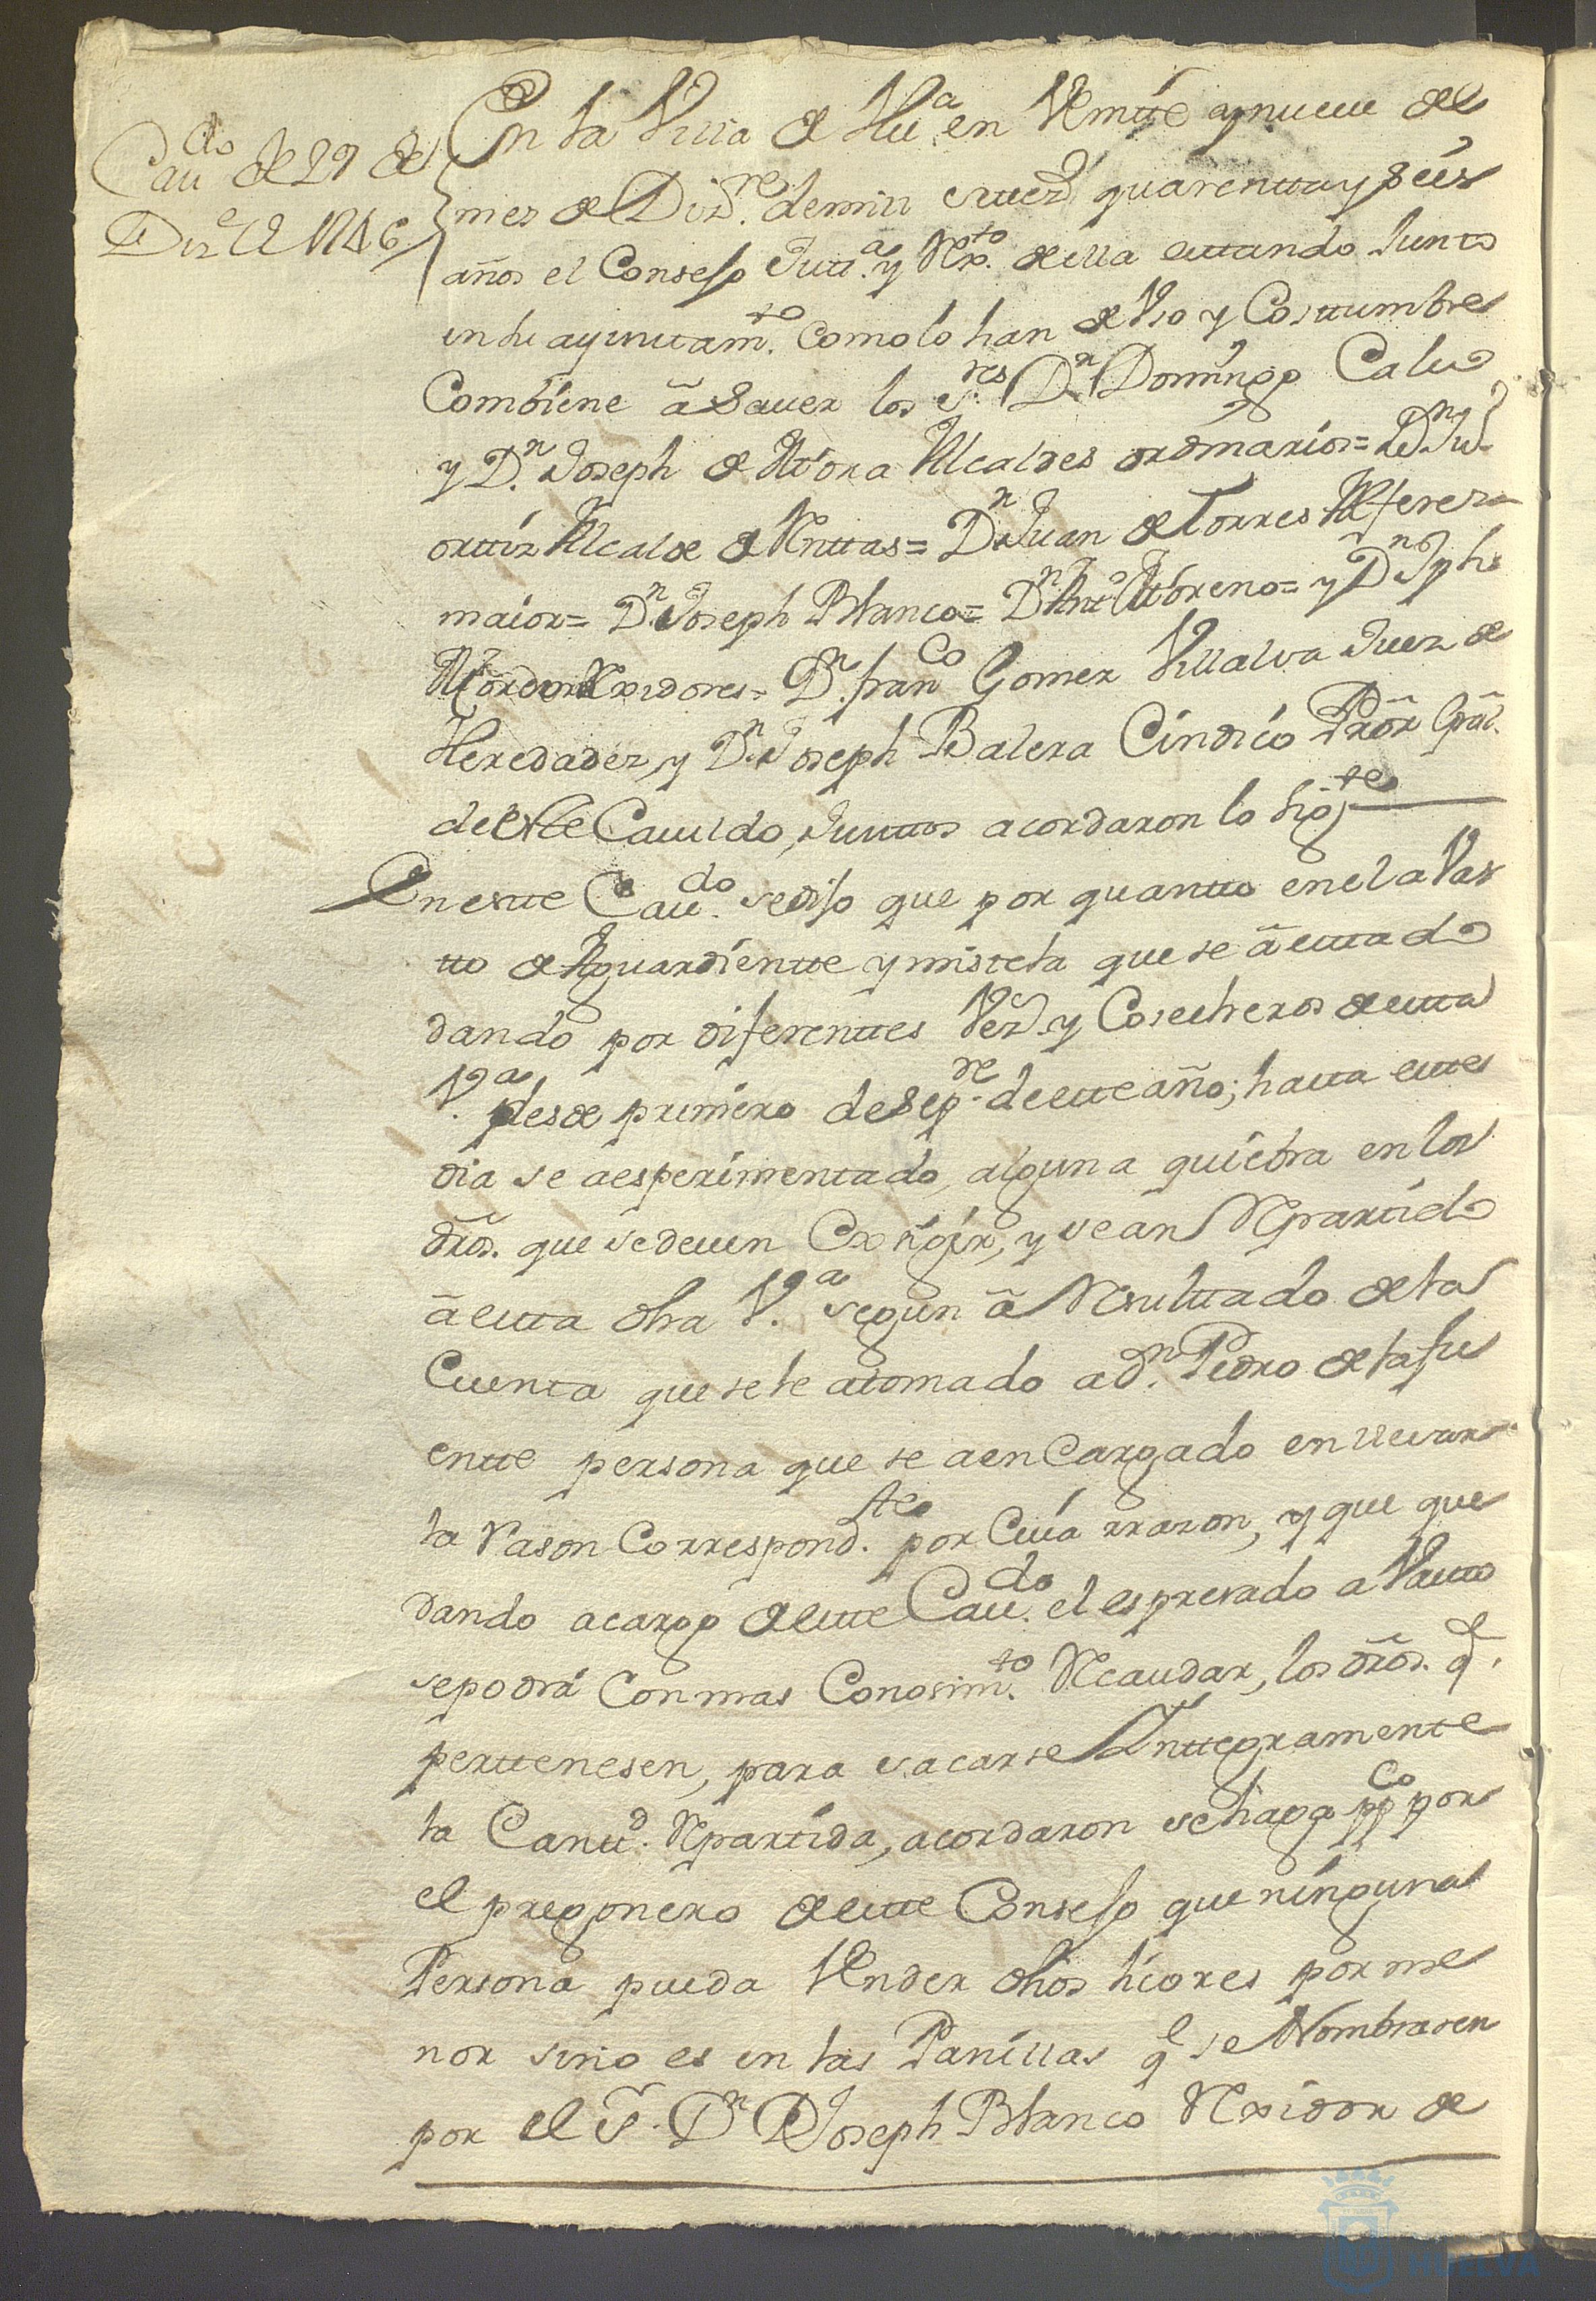 Cau.do de 29 de
Diz.e de 1746
En la Villa de Hu.a en Veintte y nueue del
mes de Diz.re de mill settez.s quarentta y seis
años el Consejo Justt.a y Rex.to de ella estando Juntos
en su ayunttam.to como lo han de Vso y Costtumbre
Combiene â Sauer los S.res D.n Domingo Calvo
y D.n Joseph de Mora Alcaldes ordinarios= D.n Ju.
orttiz Alcalde de Renttas= D.n Juan de Torres Alferez
maior= D.n Joseph Blanco= D.n Ant.o Moreno= y D.n Jph
Rexidores= D.n fran.co Gomez Villalva Juez de
Heredadez, y D.n Joseph Balera Cindico Pror Gral.
de este Cauildo, Junttos acordaron lo sig.te
En estte Cau.do se dijo que por quantto en el aVas
tto de Aguardientte y mistela que se â esttado
dando por diferenttes Vez.s y Cosecheros de estta
V.a desde primero de Sep.re de este año; hasta estte
dia se a esperimentado, alguna quiebra en los
dros. que se deuen Exsigir, y se an Repartido
â estta dha V.a segun â Resulttado de la
Cuenta que se le a tomado a D.n Pedro de la fu
entte persona que se a encargado en lleuar
la Rason Correspond.te por Cuia rrazon, y que que
dando a cargo de estte Cau.do el espresado aVastto
se podrâ Con mas Conosim.to Recaudar, los dros. q.e
perttenesen, para sacarse Inttegramente
la Cantt.d Repartida, acordaron se haga pp.co por
el pregonero de estte Consejo que ninguna
Persona pueda Vender dhos licores por me
nor sino es en las Panillas q.e se Nombrasen
por el S.r D.n Joseph Blanco Rexidor de
HUELVA